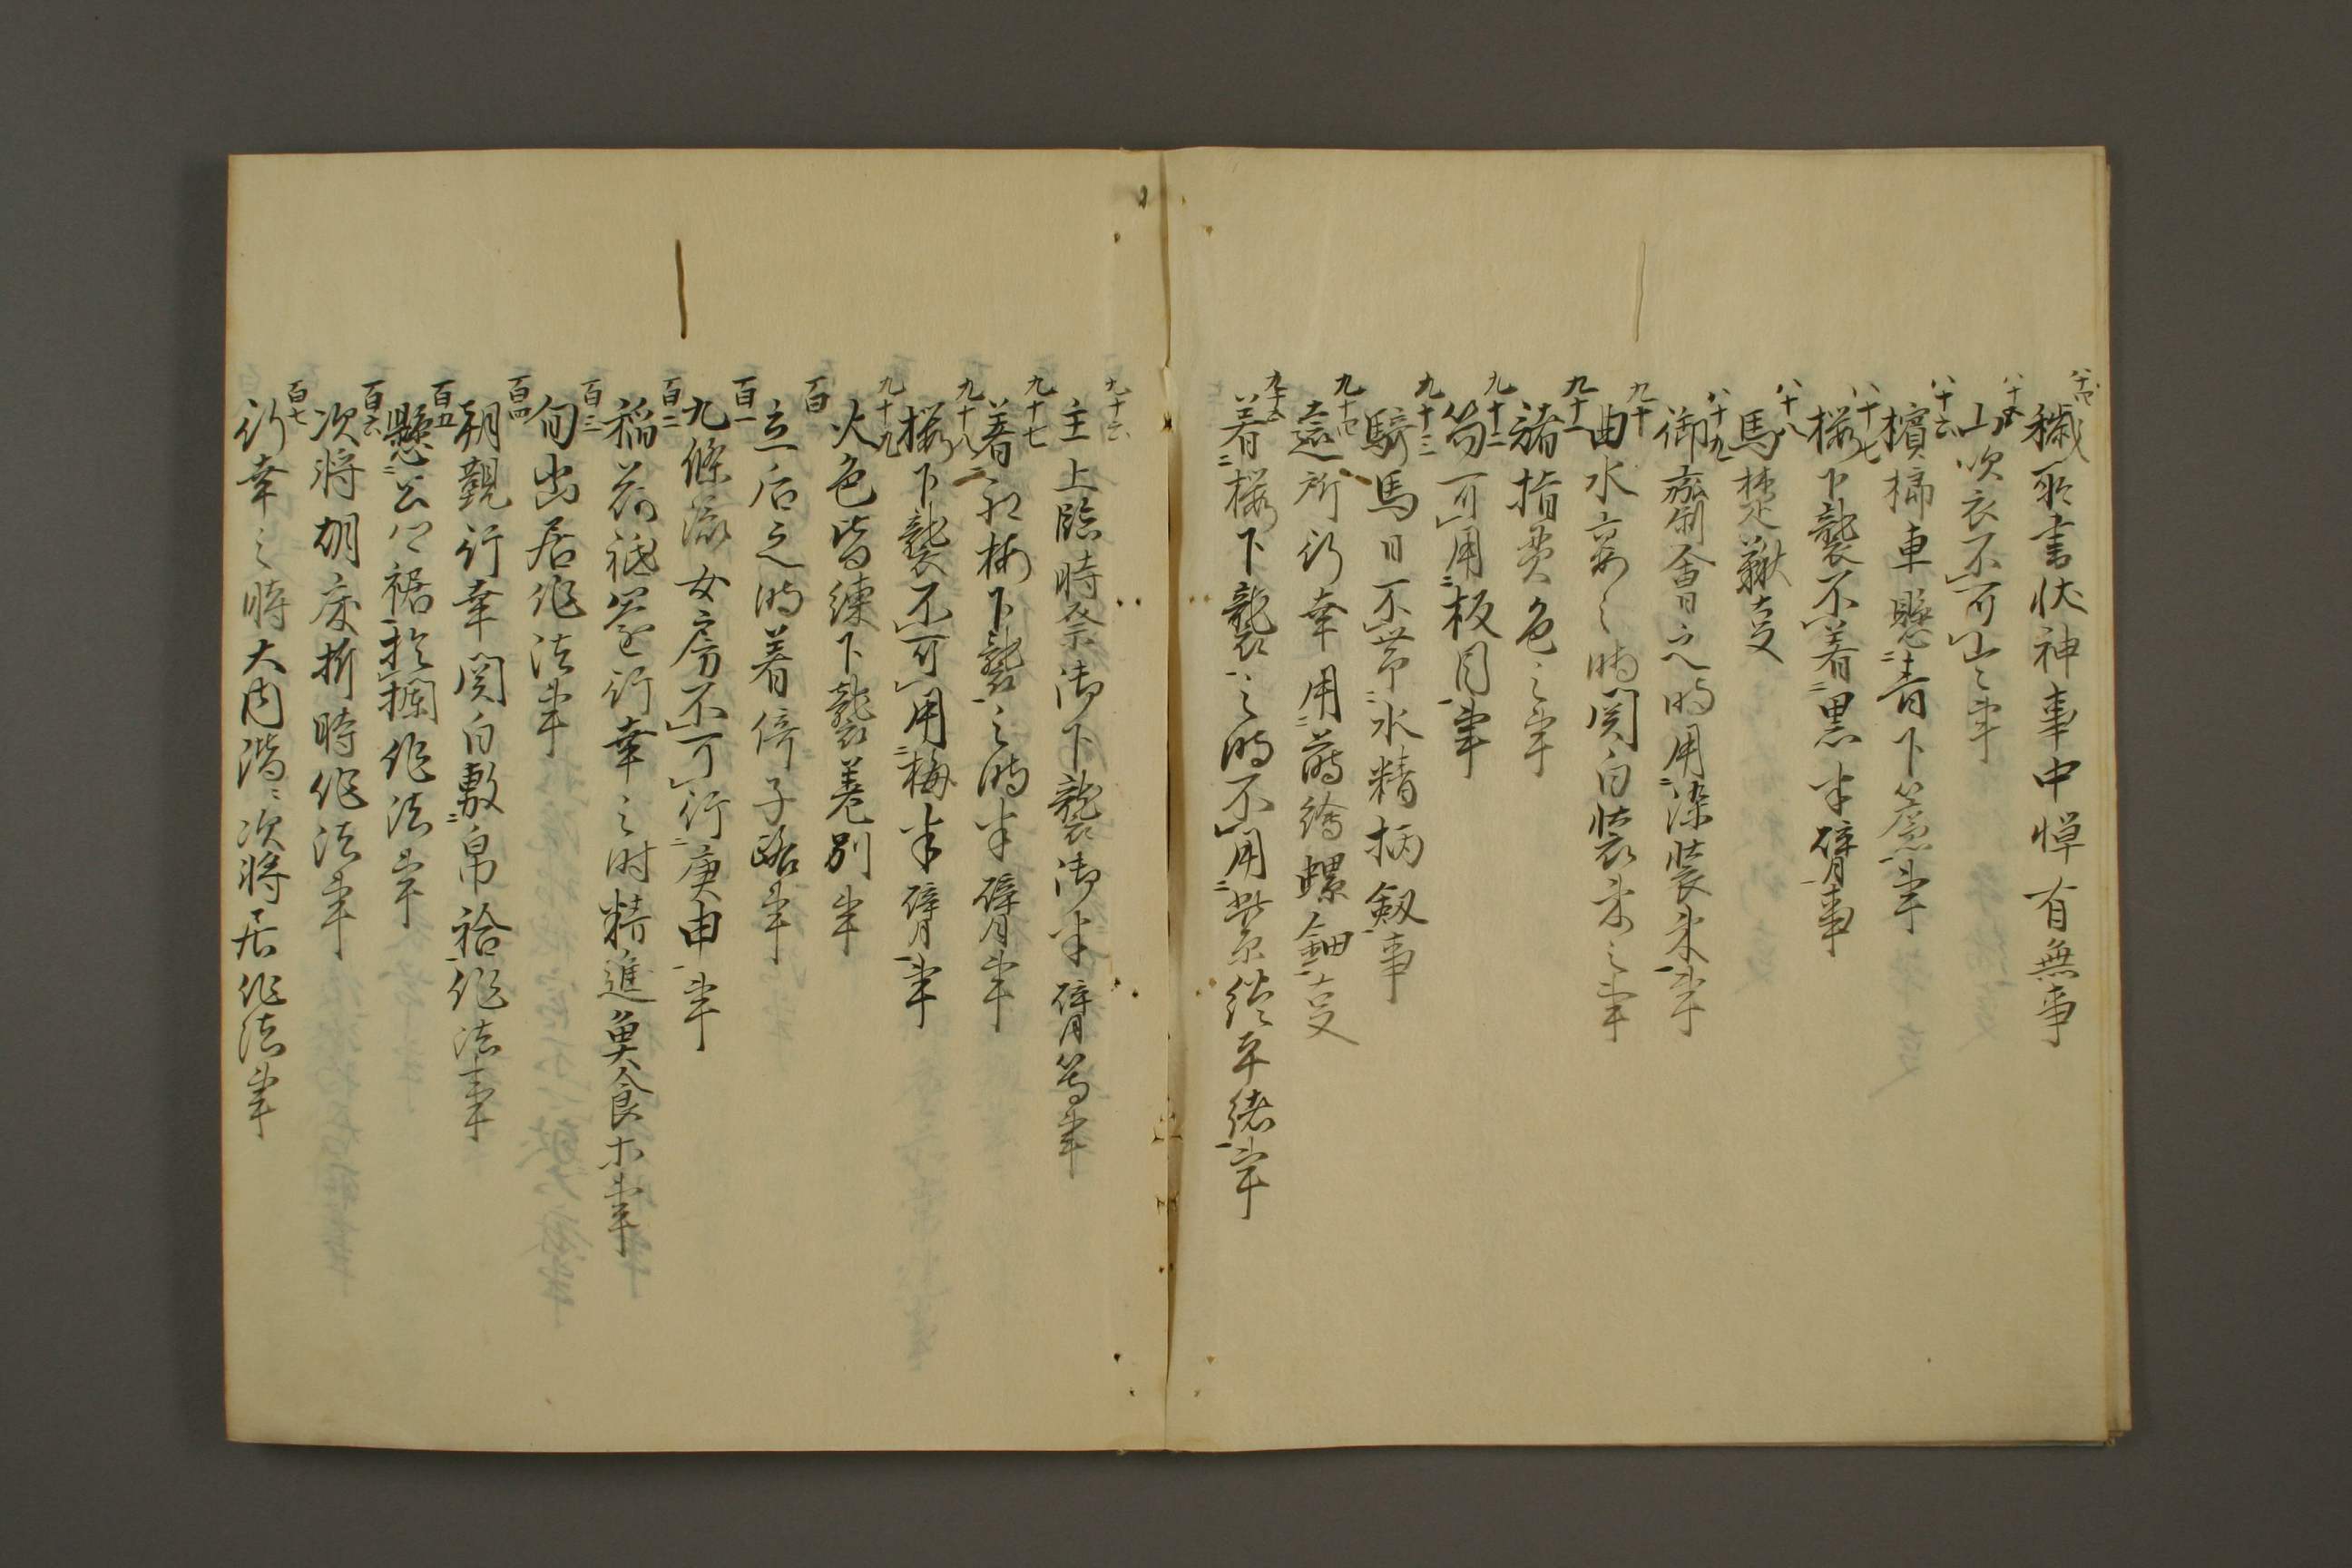 八十四 穢所書状神事中憚有無事
八十五 山吹衣不可出之事
八十六 檳榔車懸青下簾事
八十七 桜下襲不着黒半臂事
八十八 馬楚鞦事
八十九 御斎会日之時用染装束事
九十 曲水宴之時関白装束之事
九十一 諸指貫色之事
九十二 笏可用板目事
九十三 騎馬日不帯水精柄剱事
九十四 遠所行幸用蒔絵螺鈿事
九十五 着桜下襲之時不用紫緂平緒事
九十六 主上臨時祭御下襲御半臂等事
九十七 着紅梅下襲之時半臂事
九十八 桜下襲不可用梅半臂事
九十九 火色皆練下襲差別事
百 立后之時着倚子路事
百一 九條流女房不可行庚申事
百二 稲荷祗園行幸之時精進魚食木事
百三 旬出居作法事
百四 朝覲行幸関白敷帛袷作法事
百五 懸公卿裾於欄作法事
百六 次将胡床折時作法事
百七 行幸之時大内階次将居作法事